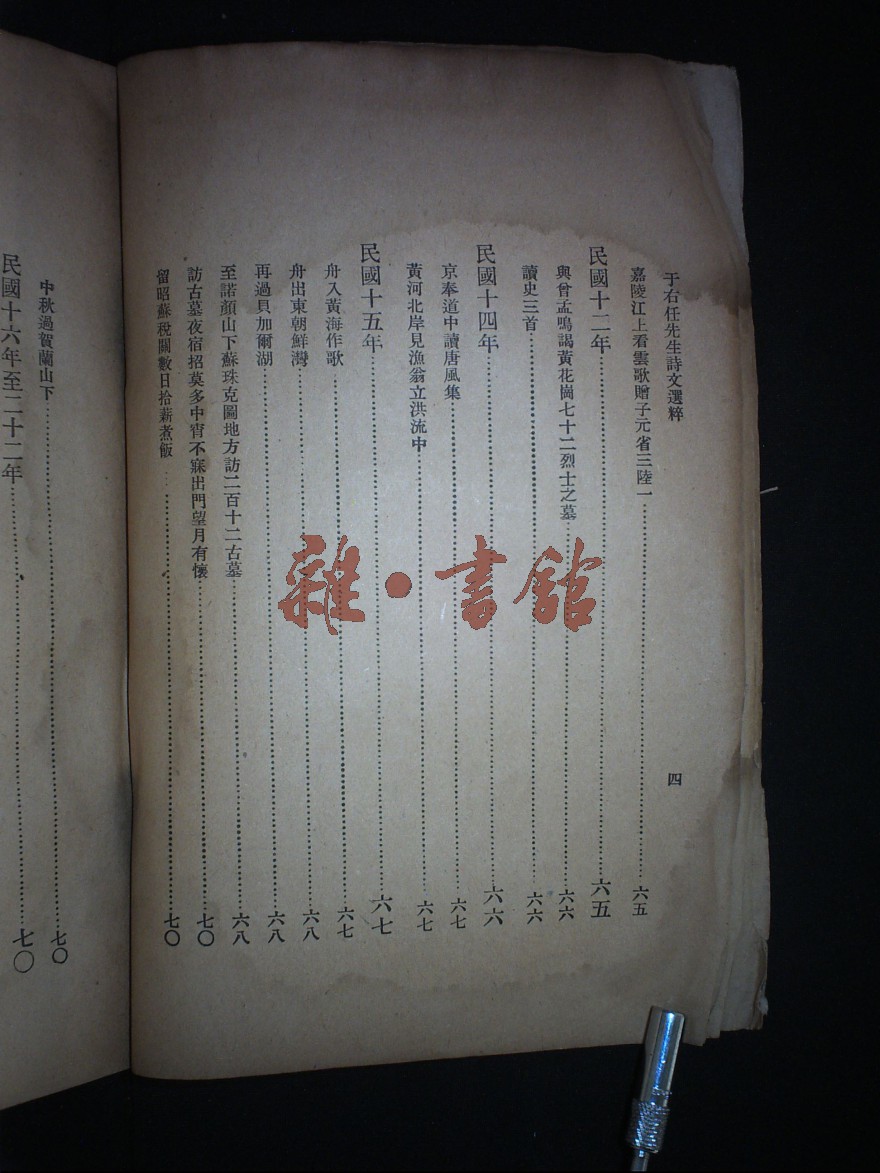 于右任先生詩文選粹
四
嘉陵江上看雲歌贈子元省三陸一……六五
民國十二年……六五
與曾孟鳴謁黃花崗七十二烈士之墓……六六
讀史三首……六六
民國十四年……六六
京奉道中讀唐風集……六七
黃河北岸見漁翁立洪流中……六七
民國十五年……六七
舟入黃海作歌……六七
舟出東朝鮮灣……六八
再過貝加爾湖……六八
至諾顏山下蘇珠克圖地方訪二百十二古墓……六八
訪古墓夜宿招莫多中宵不寐出門望月有懷……七〇
留昭蘇稅關數日拾薪煮飯……七〇
中秋過賀蘭山下……七〇
民國十六年至二十二年……七〇
雜·書館